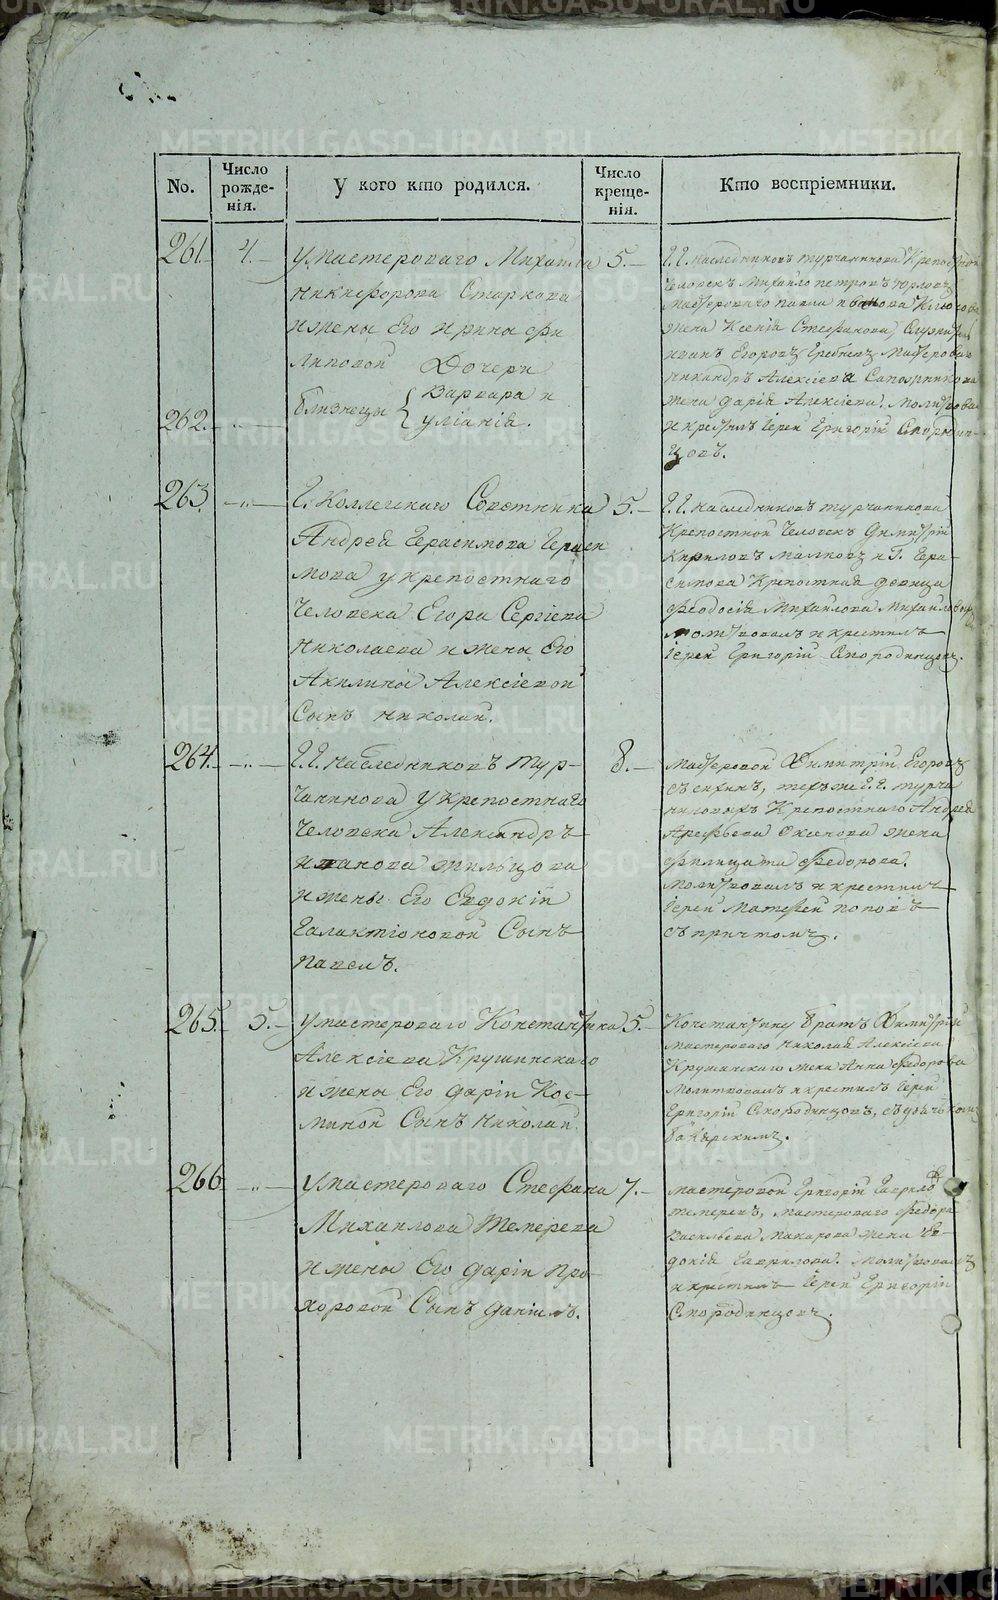 No.
Число рожде-нія.
У кого кто родился.
Число креще-нія.
Кто воспріемники.
261.
4.
У мастероваго Михайла
Никифорова Старкова
и жены Его Ирины Фи
липовой Дочери
близнецы { Варвара и
Уліанія.
262.
5.
Г.Г. наследниковъ Турчанинова Крепостной
человекъ Михайло Петровъ
Мастероваго Павла
жена Ксенія Стефанова, Служитель
Иванъ Егоровъ Гребневъ Мастероваго
Никандръ Алексіева Сапожникова
жена Дарія Алексіева. Молитвовалъ
и крестилъ Іерей Григорій Смородин-
цовъ.
263.
Г. Коллежскаго Советника
Андрея Герасимова Герасси
мова у крепостнаго
человека Егора Сергіева
Николаева и жены Его
Акилины Алексіевой
Сынъ Николай.
5.
Г.Г. наследниковъ Турчанинова
Крепостной Человекъ Димитрій
Кириловъ Малковъ и Г. Гера-
симова Крепостная девица
Феодосія Михайлова Михайлова
Молитвовалъ и крестилъ
Іерей Григорій Смородинцовъ.
264.
Г.Г. наследниковъ Тур-
чанинова у крепостнаго
человека Александръ
Иванова Жильцова
и жены Его Евдокіи
Галактіоновой Сынъ
Павелъ.
8.
Мастеровой Димитрій Егоровъ
техже Г.Г. Турча
ниновыхъ Крепостнаго Андрея
Арефьева Оксенова жена
Филицата Федорова.
Молитвовалъ и крестилъ
Іерей Матфей Поповъ
съ причтомъ.
265.
5.
У мастероваго Константина
Алексіева Крушинскаго
и жены Его Даріи Кос-
миной Сынъ Николай.
5.
Константину братъ Димитрій
Мастероваго Николая Алексіева
Крушинскаго жена Анна Федорова
Молитвовалъ и крестилъ Іерей
Григорій Смородинцовъ, съ дьячькомъ
266
У мастероваго Стефана
Михаилова Темерева
и жены Его Даріи Про-
хоровой Сынъ Даніилъ.
7.
Мастеровой Григорій Гаврило
Темеревъ, мастероваго Федора
Васильева Макарова жена Ев-
докія Гаврилова. Молитвовалъ
и крестилъ Іерей Григорій
Смородинцовъ.
METRIKI.GASO-URAL.RU